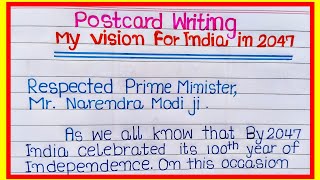 Postcard Writing
My vision For India in 2047
Respected Prime Minister,
Mr. Narendra Modi ji.
As we all know that By 2047
India celebrated its 100th year of
Independence. On this occasion